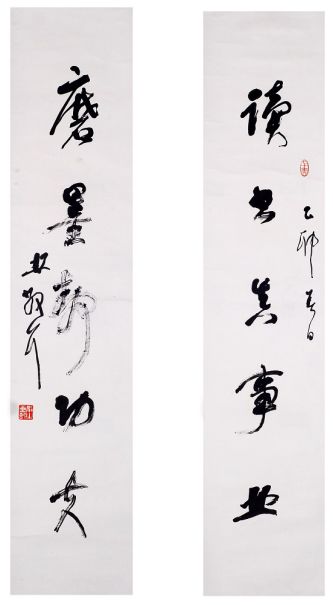 讀書真事業
乙卯春日
磨墨靜功夫
林散耳